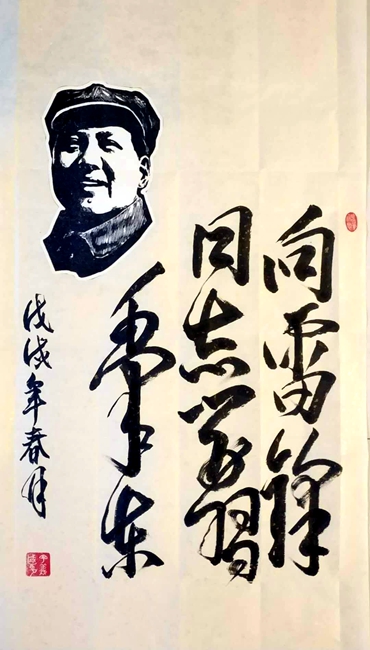 向雷锋
同志学习
毛泽东
戊戌年春月